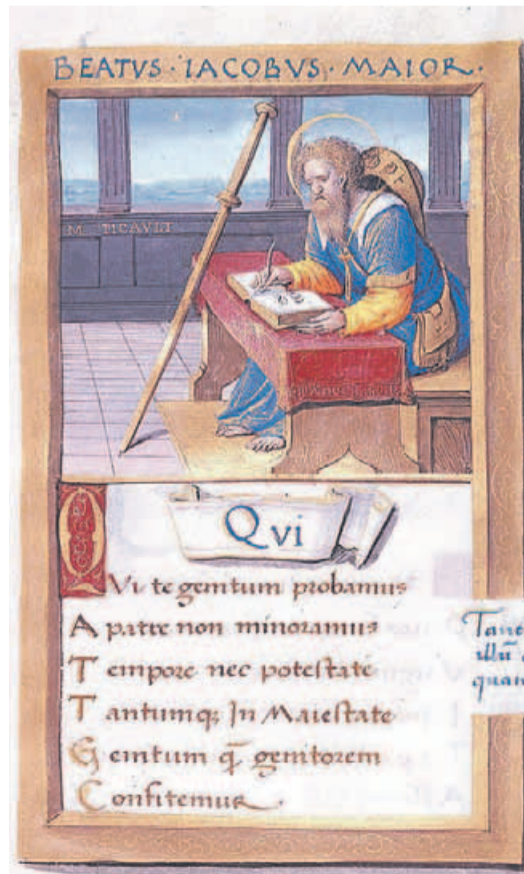 BEATVS · IACOBVS · MAIOR ·
Qvi
QVi te genitum probamus
A patre non minoramus
Tempore nec potestate
Tantumq; In Maiestate
Genitum q̄ genitorem
Confitemur
illū